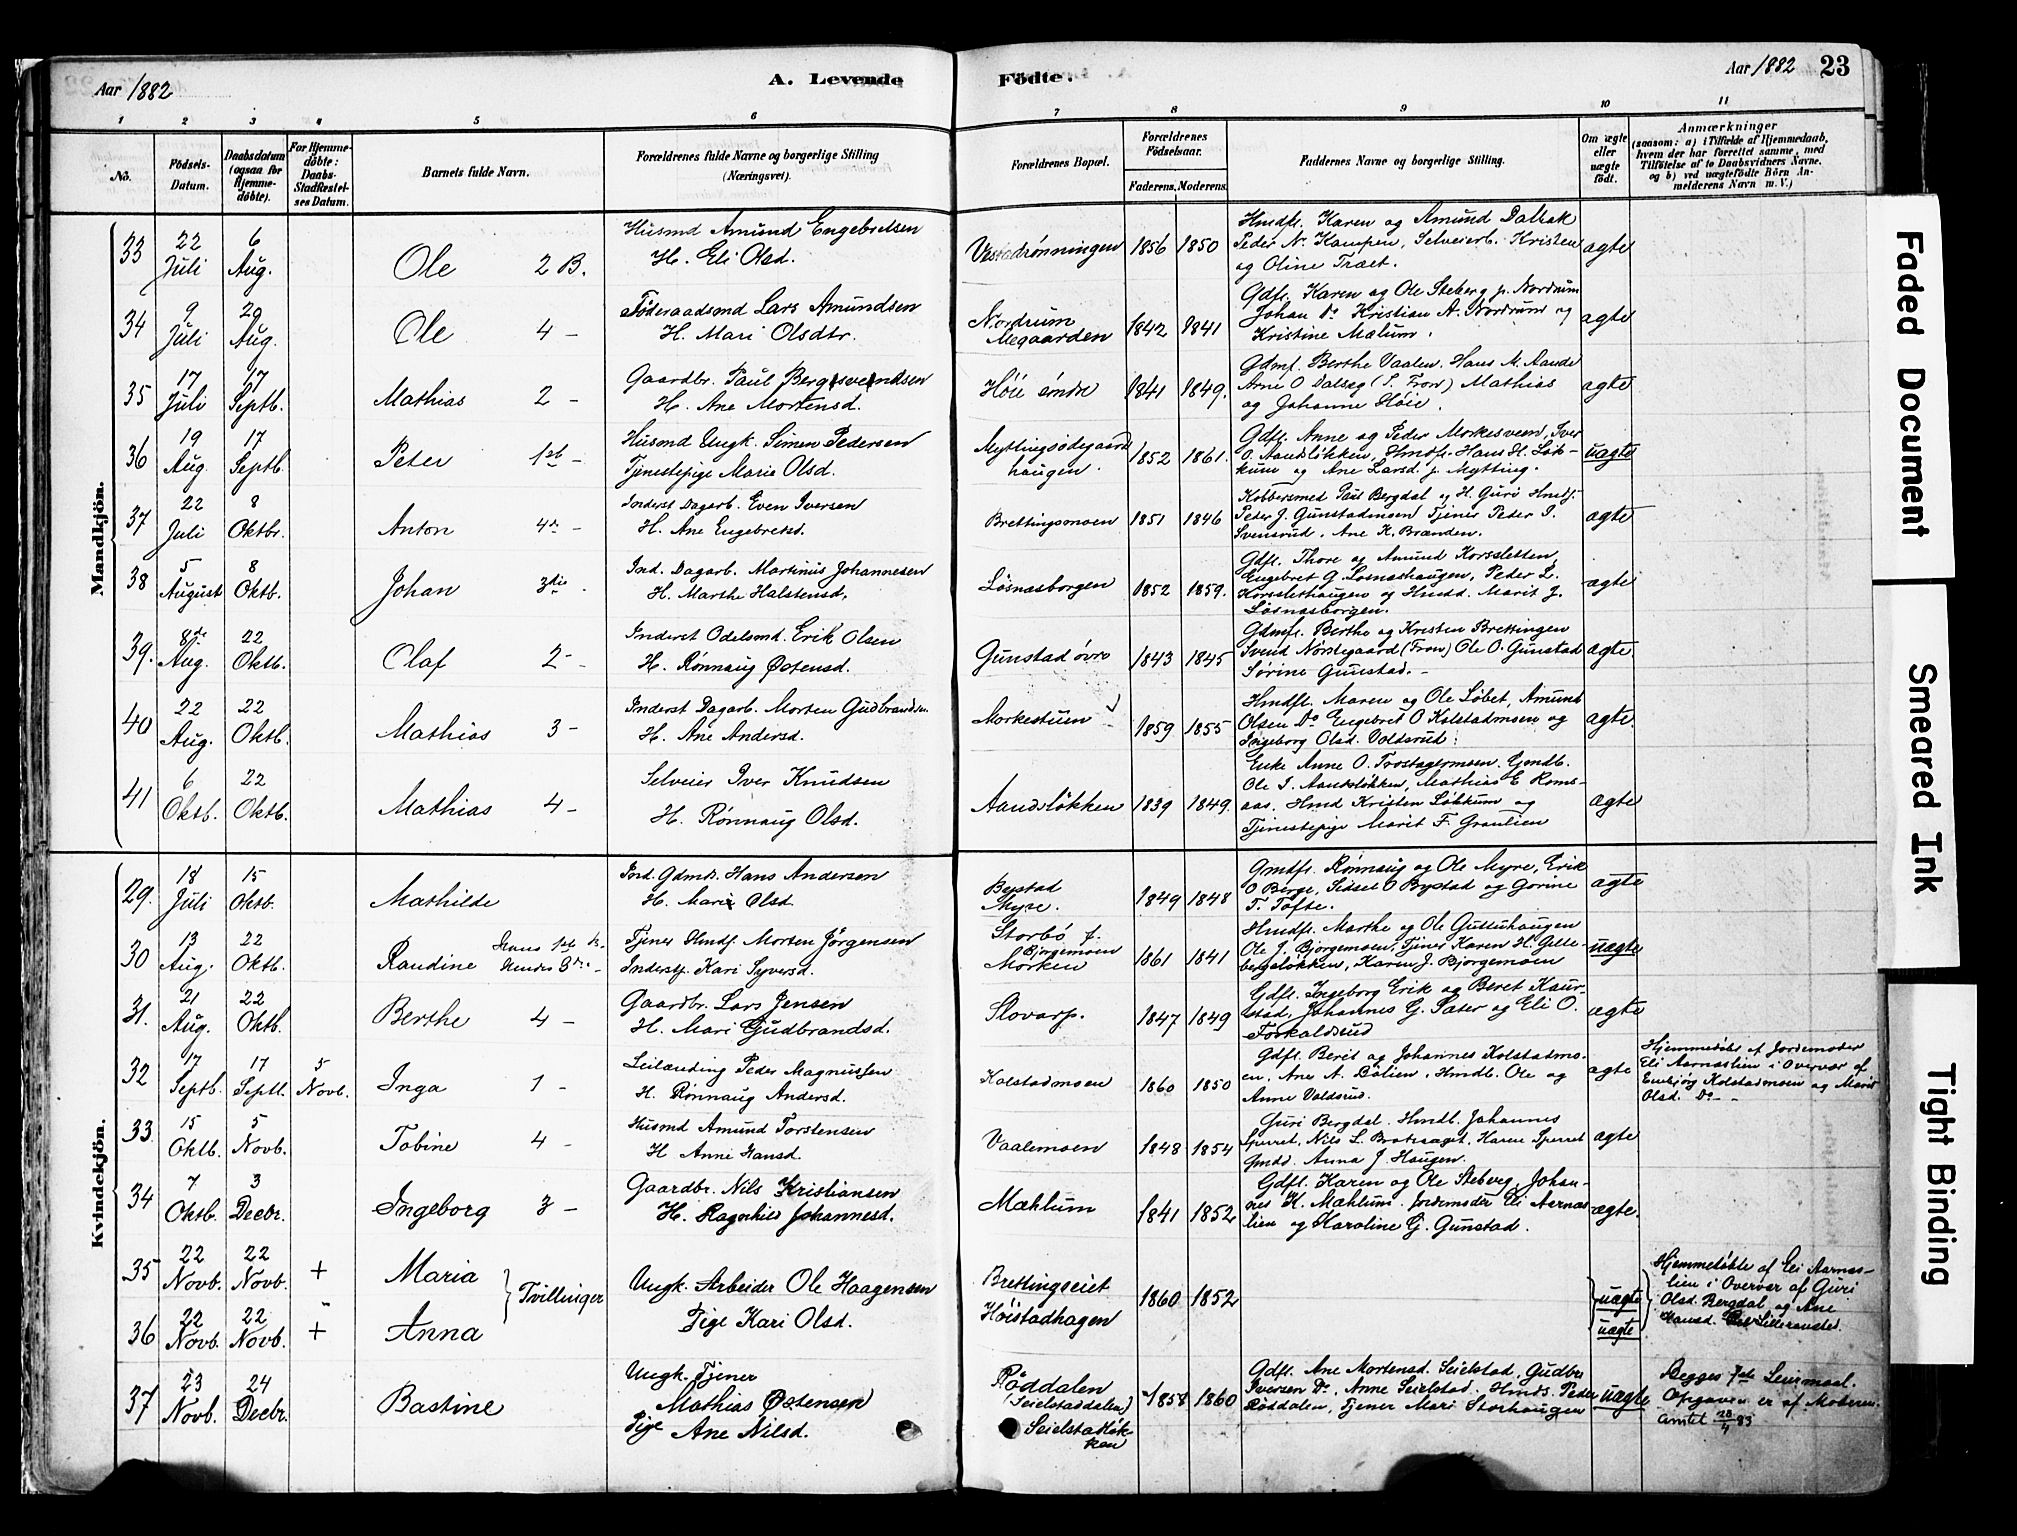 Aar 1882
A. Levende
Födte.
Aar 1882 23
1 2 3 4 5 6 7 8 9 10 11
No.
Födsels-Datum.
Daabsdatum (ogsaa for Hjemme-döbte).
For Hjemme-döbte: Daabs-Stadfæstel-ses Datum.
Barnets fulde Navn.
Forældrenes fulde Navne og borgerlige Stilling (Næringsvei).
Forældrenes Bopæl.
Forældrenes Födselsaar.
Faderens. Moderens.
Faddernes Navne og borgerlige Stilling.
Om ægte eller uægte født.
Anmærkninger
(saasom: a) i Tilfælde af Hjemmedaab,
hvem der har forrettet samme, med
Tilföielse af to Daabsvidners Navne.
og b) ved uægtefödte Börn An-
melderens Navn m. V.)
Mandkjön.
33 22 Juli 6 Aug. Ole 2 B.
Husmd Amund Engebretsen
H. Eli Olsd.
Vestadrønningen 1856 1850
Hmdfl. Karen og Amund Dalbak
Peder N. Kampen, Selveierb. Kristen
og Oline Træet.
ægte
34 9 Juli 20 Aug. Ole 4 -
Føderaadsmd Lars Amundsen
H. Mari Olsdtr.
Nordrum
Megaarden 1842 1841
Gdfl. Karen og Ole Steberg p. Nordrum
Johan Do Kristian A. Nordrum og
Kristine Mælum.
ægte
35 17 Juli 17 Septb. Mathias 2 -
Gaardbr. Paul Bergsvendsen
H. Ane Mortensd.
Høie søndre 1841 1849.
Gdmf. Berthe Vaalen. Hans M. Aande
Arne O Dalseg (S. Fron) Mathias
og Johanne Høie.
ægte
36 19 Aug. 17 Septb. Peter 1st -
Husmd Ungk. Simen Pedersen
Tjenestepige Maria Olsd.
Myttingsødegaard
haugen. 1852 1861.
Gdfl. Anne og Peder Morkesveen, Iver
O. Aandsløkken, Hmdfr. Hans H. Løk-
kum og Ane Larsd. p. Mytting.
uægte
37 22 Juli 8 Oktbr. Anton 4de -
Inderst Dagarb. Even Iversen
H. Ane Engebretsd.
Brettingsmoen 1851 1846
Kobbersmed Paul Bergdal og H. Guri Hmdf.
Peter J. Gunstadmoen Tjener Peter P.
Svensrud, Ane K. Brænden.
ægte
38 5 August 8 Oktb. Johan 3die.
Ind. Dagarb. Martinus Johannesen
H. Marthe Halstensd,
Løsnæsborgen 1852 1859.
Gdfl. Thore og Amund Korssletten,
Engebret G. Losnæshaugen, Peder L.
Korsslethaugen og Hmdd. Marit J.
Løsnæsborgen.
ægte
39. 8de Aug. 22 Oktb. Olaf 2 -
Inderst Odelsmd. Erik Olsen
H. Rønnaug Østensd.
Gunstad øvre 1843 1845
Gdmfl. Berthe og Kristen Brettingen
Svend Nørstegaard (Fron) Ole O. Gunstad
Sørine Gunstad. -
ægte.
40 22 Aug. 22 Oktb. Mathias 3 -
Inderst Dagarb. Morten Gudbrandsn.
H. Ane Andersd.
Morkestuen 1859 1855
Hmdfl. Maren og Ole Løbet, Amund
Olsen Do Engebret O Kolstadmoen og
Ingeborg Olsd. Voldsrud.
ægte.
41 6 Oktb. 22 Oktb. Mathias 4 -
Selveier Iver Knudsen
H. Rønnaug Olsd.
Aandsløkken 1839 1849.
Enke Anne O. Trostagermoen. Gmdb.
Ole I. Aandsløkken, Mathias E Roms-
aas. Hmd Kristen Løkkum og
Tjenestepige Marit F. Granlien
ægte
Kvindekjön.
29. 18 Juli 15 Oktb. Mathilde
Ind. Gdmds. Hans Andersen
H. Mari Olsd.
Bystad
Myre. 1849 1848
Gmdfl. Rønnaug og Ole Myre, Erik
O Berge, Sidsel O Bystad og Gorine
T. Tofte.
ægte
30 13 Aug. 22 Oktb. Randine Hans 1ste B.
Hendes 3die -
Tjener Hmdf. Morten Jørgensen
Inderstp. Kari Syversd.
Storbø f.
Bjørgemoen
Morken 1861 1841
Hmdfl. Marthe og Ole Guttuhaugen
Ole J. Bjørgemoen, Tjener Karen H. Gille-
bergsløkken, Karen J. Bjørgemoen
uægte
31. 21 Aug. 22 Oktb. Berthe 4 -
Gaardbr. Lars Jensen
H. Mari Gudbrandsd.
Slovarp. 1847 1849
Gdfl. Ingeborg Erik og Beret Kaur-
stad, Johannes G. Sater og Eli O.
Forkaldsrud
ægte
32 17 Septb. 17 Septb. 5 Novb. Inga 1 -
Leilænding Peder Magnussen
H. Rønnaug Andersd.
Kolstadmoen 1860 1850
Gdfl. Berit og Johannes Kolstadmo-
en. Ane A. Bølien, Hmdb. Ole og
Anne Voldsrud.
ægte
Hjemmedøbt af Jordemoder
Eli Aarnæslien i Overvær af
Embjørg Kolstadmoen og Marit
Olsd. Do -
33. 15 Oktb. 5 Novb. Tobine 4 -
Husmd Amund Torstensen
H Anne Hansd.
Vaalemoen 1848 1854
Guri Bergdal. Hmdb. Johannes
Sperret, Nils L. Brotsaget, Karen Sperret
Gmdd. Anna J. Haugen.
ægte
34 7 Oktb. 3 Decbr. Ingeborg 3 -
Gaardbr. Nils Kristiansen
H. Ragnhild Johannesd.
Mæhlum 1841 1852
Gdfl. Karen og Ole Steberg, Johan-
nes K. Mæhlum. Jordemoder Eli Aarnæs
lien og Karoline G. Gunstad.
ægte.
35 22 Novb. 22 Novb. + Maria
36 22 Novb. 22 Novb. + Anna
Tvillinger
Ungk. Arbeider Ole Haagensen
Pige Kari Olsd.
Brettingseiet
Høistadhagen 1860 1852
uægte
uægte
Hjemmedøbte af Eli Aarnæs-
lien i Overvær af Guri
Olsd. Bergdal og Ane
Hansd. Lilleransted.
37 23 Novb. 24 Decbr. Bastine
Ungk. Tjener
Mathias Østensen
Pige Ane Nilsd.
Røddalen
(Seielstaddalen)
Seielstadløk-
ken 1858 1860
Gdfl. Ane Mortensd. Seielstad, Gudbr
Iversen Do, Anne Seielstad. Hmds. Peder
Røddalen, Tjener Mari Storhaugen
uægte
Begges 1ste Leiermaal.
Opgaven er af Moderen.
Amtet 20/4 83
Faded Document
Smeared Ink
Tight Binding